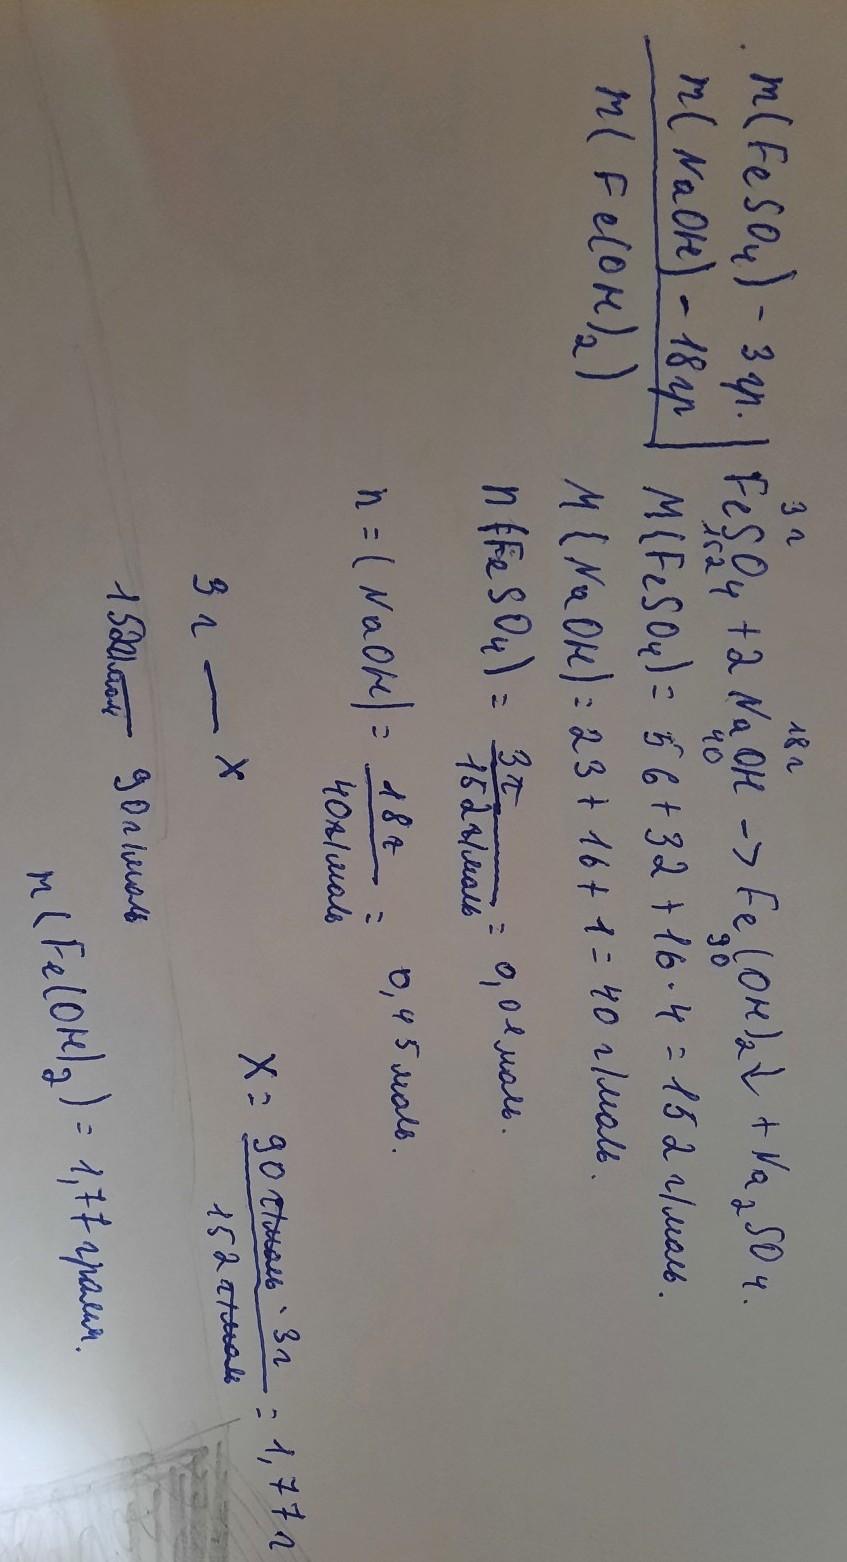 m(FeSO₄) - 3 гр.
m(NaOH) - 18 гр
m(Fe(OH)₂)
3 г 18 г
FeSO₄ + 2 NaOH -> Fe(OH)₂↓ + Na₂SO₄.
152 40 90
M(FeSO₄) = 56 + 32 + 16 · 4 = 152 г/моль.
M(NaOH) = 23 + 16 + 1 = 40 г/моль.
n(FeSO₄) = 3г / 152 г/моль = 0,02 моль.
n = (NaOH) = 18г / 40г/моль = 0,45 моль.
3 г — x
152г/моль 90 г/моль
X = 90 г/моль · 3г / 152 г/моль = 1,77 г
m(Fe(OH)₂) = 1,77 грамм.